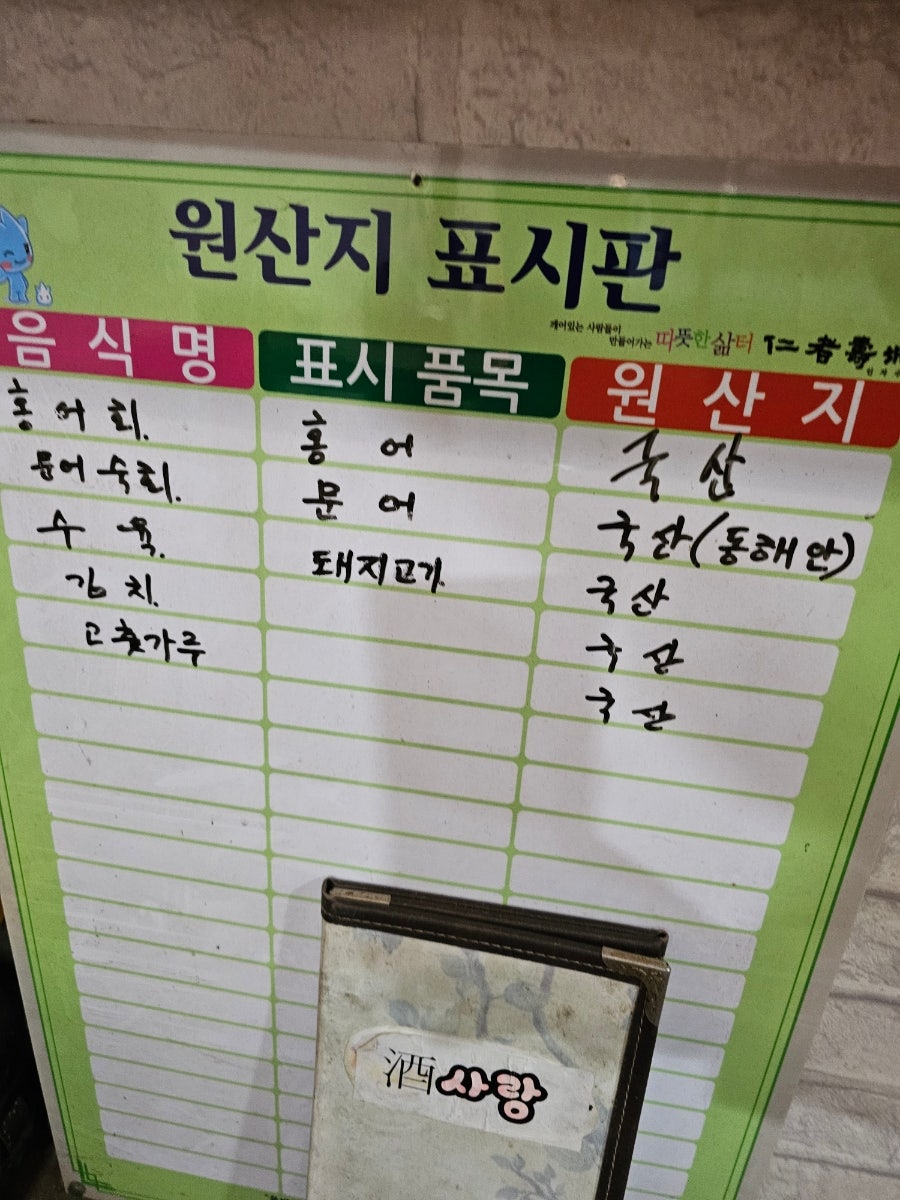 원산지 표시판
깨어있는 사람들이
만들어가는 따뜻한 삶터 仁者壽
음식명 표시품목 원산지
홍어회. 홍어 국산
문어숙회. 문어 국산(동해안)
수육. 돼지고기 국산
김치. 국산
고춧가루 국산
酒사랑